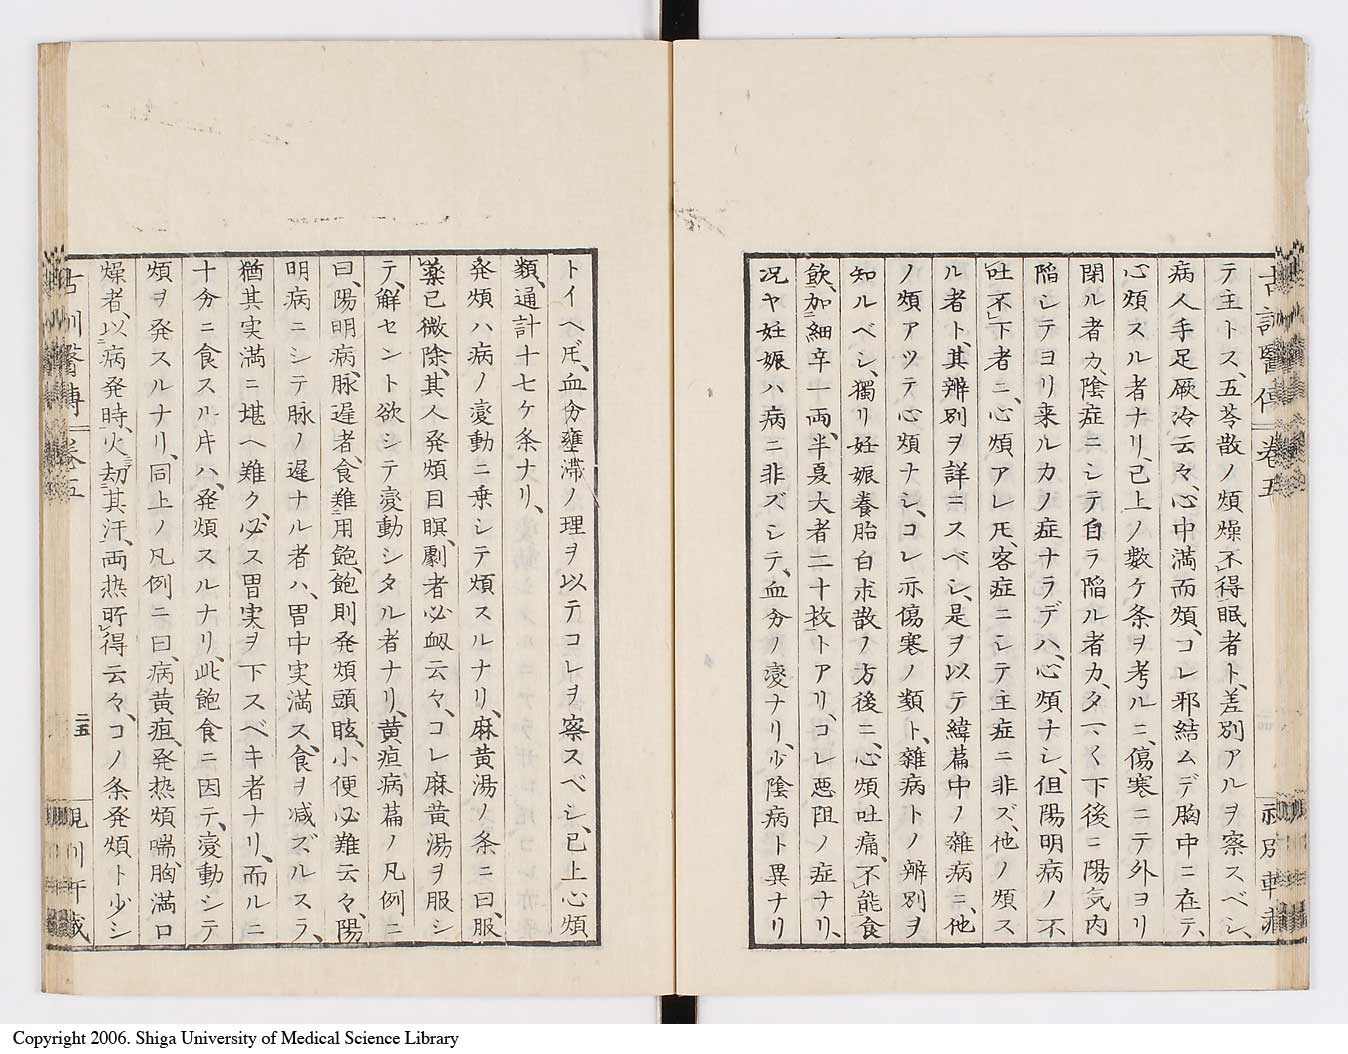 テ主トス、五苓散ノ煩燥不得眠者ト、差別アルヲ察スベシ、
病人手足厥冷云々、心中満而煩、コレ邪結ムデ胸中ニ在テ、
心煩スル者ナリ、已上ノ數ケ条ヲ考ルニ、傷寒ニテ外ヨリ
閉ル者カ、陰症ニシテ自ラ陥ル者カ、タマ〱下後ニ陽気内
陥シテヨリ来ルカノ症ナラデハ、心煩ナシ、但陽明病ノ不
吐不下者ニ、心煩アレ𪜈、客症ニシテ主症ニ非ズ、他ノ煩ス
ル者ト、其辨別ヲ詳ニスベシ、是ヲ以テ緯篇中ノ雜病ニ、他
ノ煩アツテ心煩ナシ、コレ亦傷寒ノ類ト、雜病トノ辨別ヲ
知ルベシ、獨リ妊娠養胎白朮散ノ方後ニ、心煩吐痛、不能食
飲、加細辛一両、半夏大者二十枚トアリ、コレ悪阻ノ症ナリ、
况ヤ妊娠ハ病ニ非ズシテ、血分ノ変ナリ、少陰病ト異ナリ
トイヘ𪜈、血分壅滞ノ理ヲ以テコレヲ察スベシ、已上心煩
類、通計十七ケ条ナリ、
発煩ハ病ノ変動ニ乗シテ煩スルナリ、麻黄湯ノ条ニ曰、服
薬已微除、其人発煩目瞑、劇者必衂云々、コレ麻黄湯ヲ服シ
テ、解セント欲シテ変動シタル者ナリ、黄疸病篇ノ凡例ニ
曰、陽明病、脉遅者、食難用飽、飽則発煩頭眩、小便必難云々、陽
明病ニシテ脉ノ遅ナル者ハ、胃中実満ス、食ヲ減ズルスラ、
猶其実満ニ堪ヘ難ク、必ス胃実ヲ下スベキ者ナリ、而ルニ
十分ニ食スル片ハ、発煩スルナリ、此飽食ニ因テ、変動シテ
煩ヲ発スルナリ、同上ノ凡例ニ曰、病黄疸、発热煩喘胸満口
燥者、以病発時、火劫其汗、両热所得云々、コノ条発煩ト少シ
古訓醫傳 卷五
二五